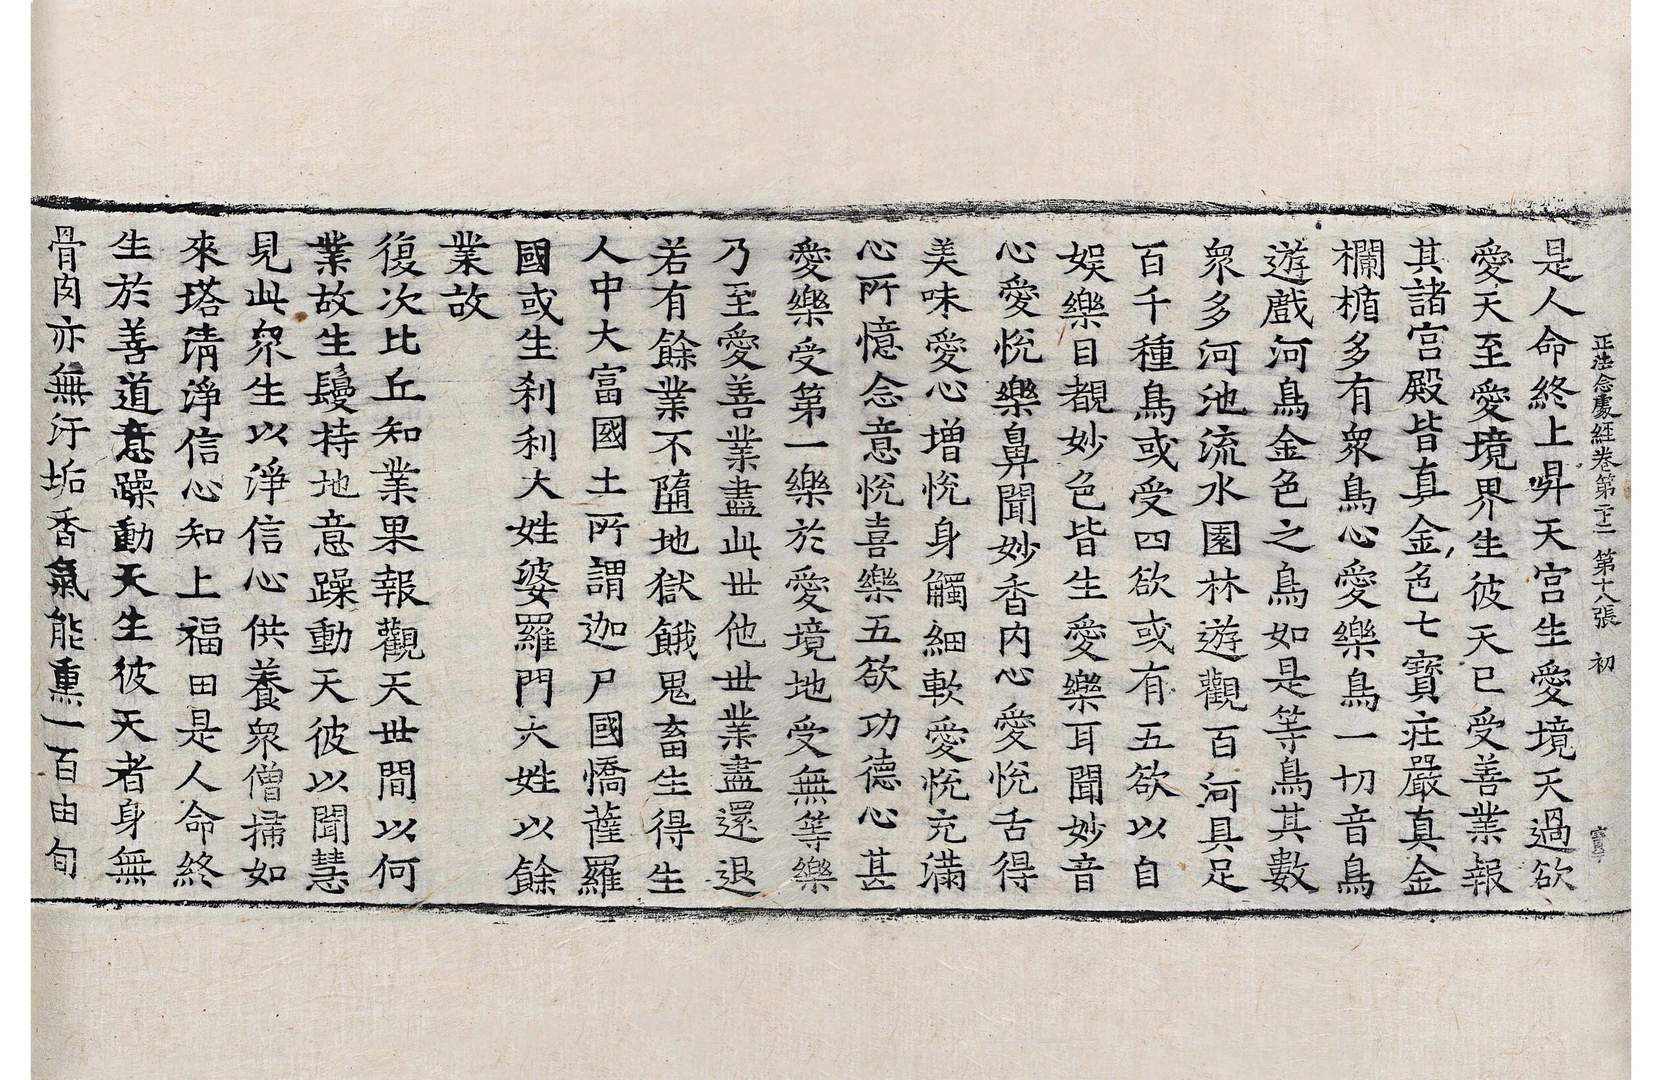 正法念處經卷第二十二 第十八張 初
是人命終上昇天宮生愛境天過欲
愛天至愛境界生彼天已受善業報
其諸宮殿皆真金色七寶莊嚴真金
欄楯多有衆鳥心愛樂鳥一切音鳥
遊戲河鳥金色之鳥如是等鳥其數
衆多河池流水園林遊觀百河具足
百千種鳥或受四欲或有五欲以自
娛樂目覩妙色皆生愛樂耳聞妙音
心愛悅樂鼻聞妙香内心愛悅舌得
美味愛心增悅身觸細軟愛悅充滿
心所憶念意悅喜樂五欲功德心甚
愛樂受第一樂於愛境地受無等樂
乃至愛善業盡此世他世業盡還退
若有餘業不隨地獄餓鬼畜生得生
人中大富國土所謂迦尸國憍薩羅
國或生刹利大姓婆羅門大姓以餘
業故
復次比丘知業果報觀天世間以何
業故生鬘持地意躁動天彼以聞慧
見此衆生以淨信心供養衆僧掃如
來塔清淨信心知上福田是人命終
生於善道意躁動天生彼天者身無
骨肉亦無汙垢香氣能熏一百由旬